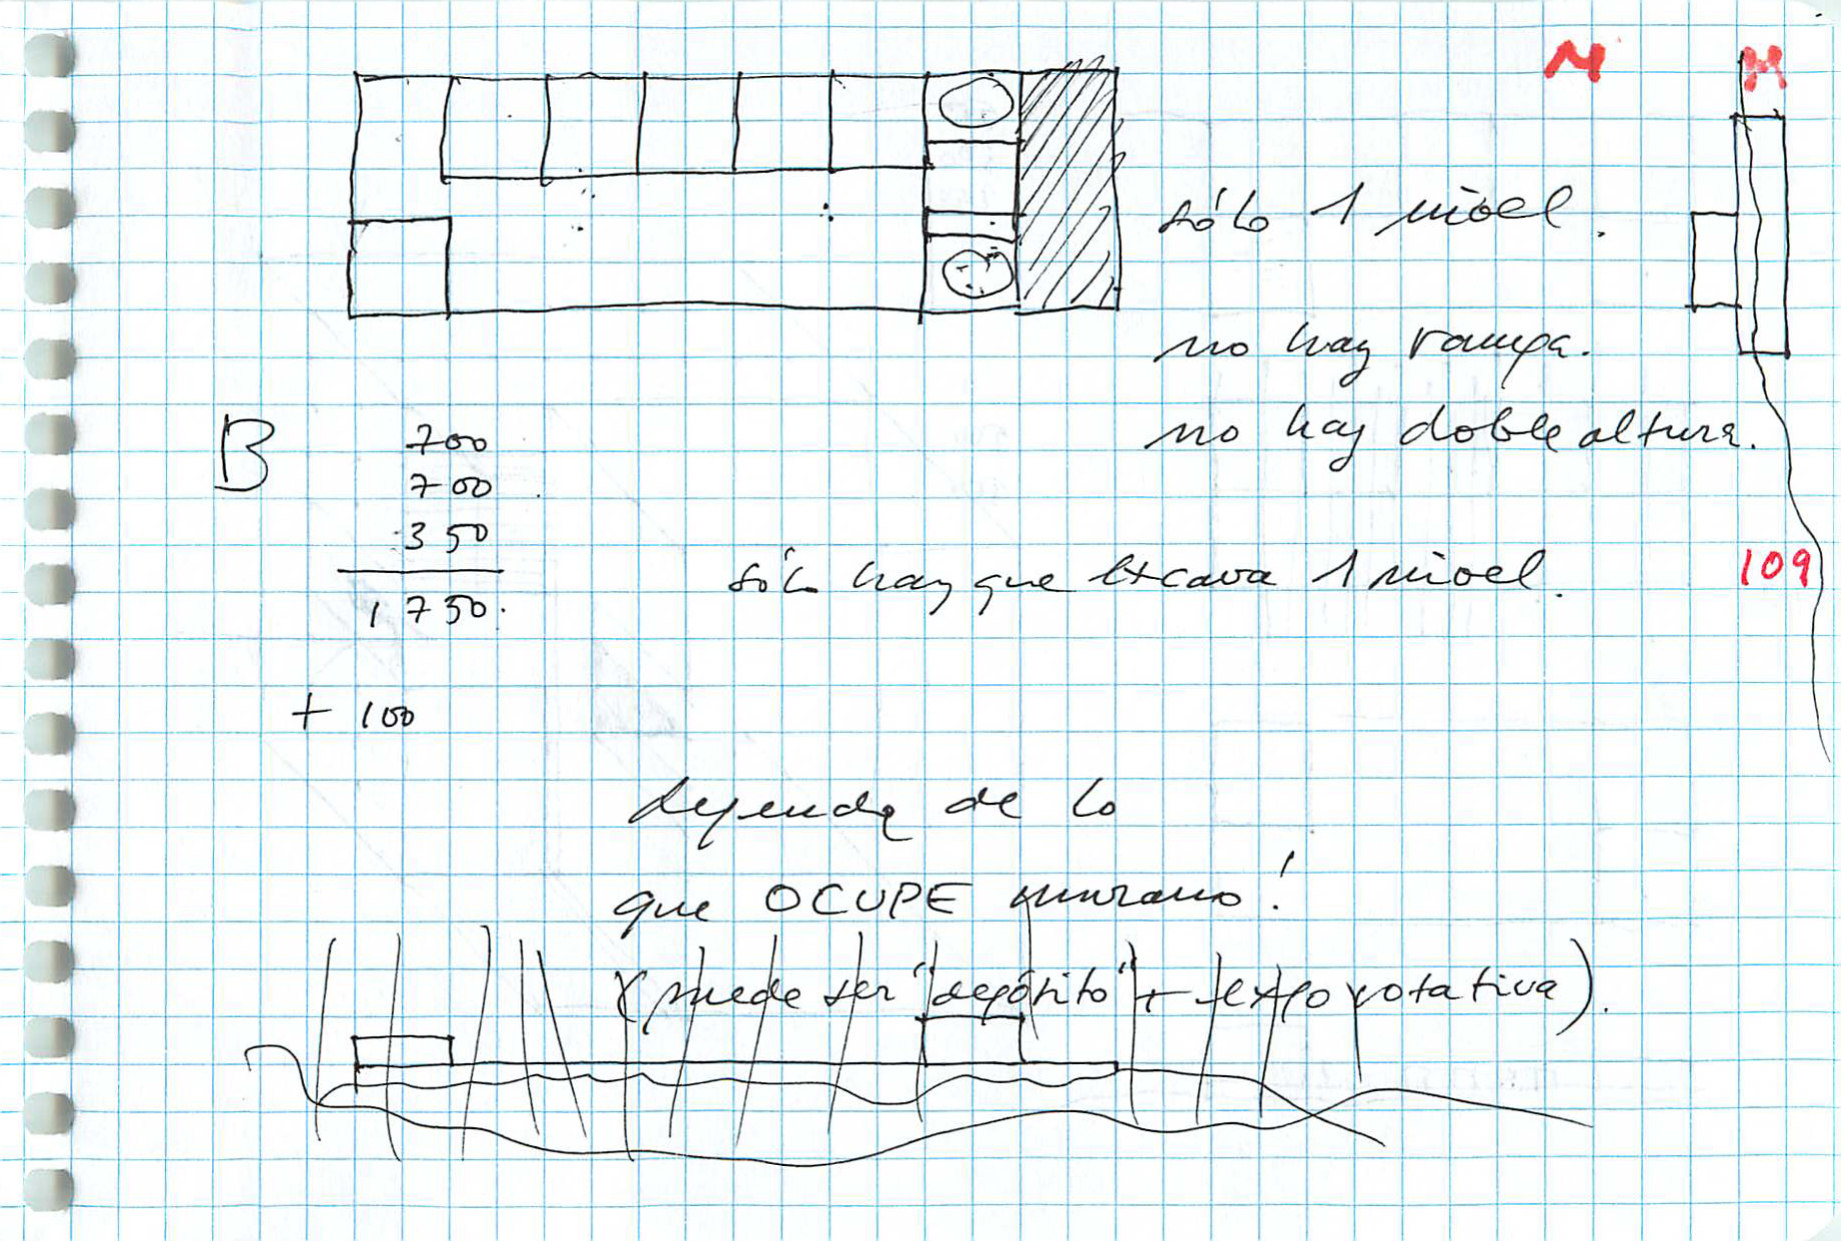 M M
sólo 1 nivel.
no hay rampa.
no hay doble altura.
B
700
700
350
1750.
sólo hay que excava 1 nivel.
109
+ 100
depende de lo
que OCUPE murano!
(puede ser "depósito" + expo rotativa).